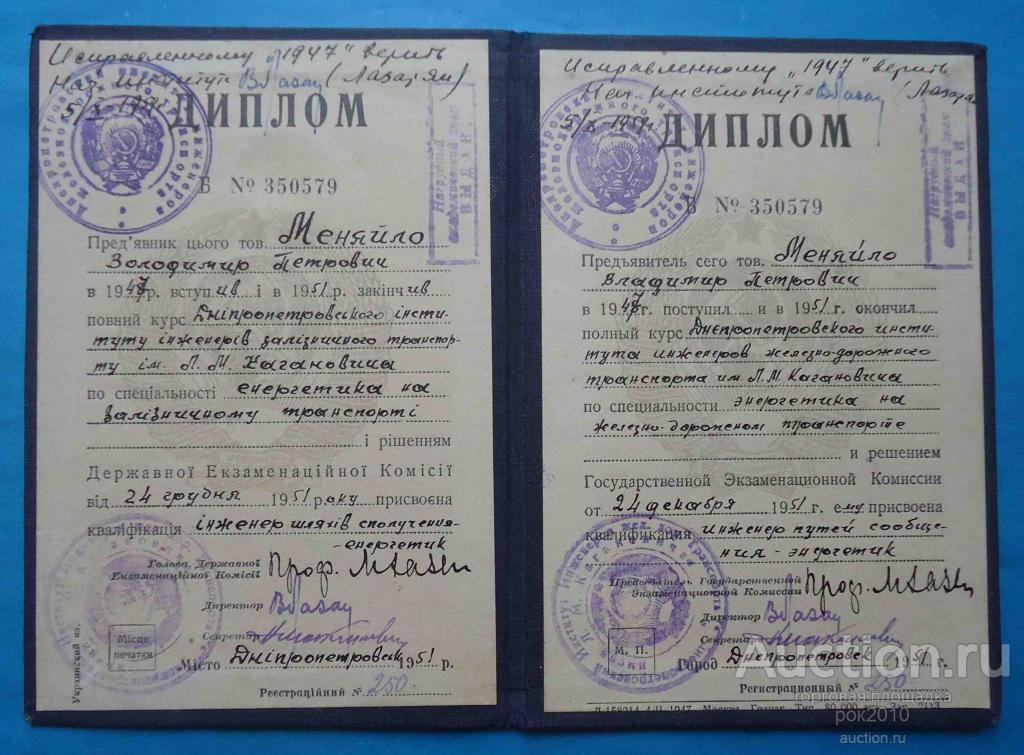 Исправленному „1947" верить
Нач. института (Лазарян)
5/X - 1951
ДИПЛОМ
Б № 350579
Нагрудный
академический знак
ВЫДАН
Пред'явник цього тов. Меняйло
Володимир Петрович
в 1947 р. вступив і в 1951 р. закінчив
повний курс Дніпропетровського інсти-
туту інженерів залізничного транспор-
ту ім. Л. М. Кагановича
по спеціальності енергетика на
залізничному транспорті
і рішенням
Державної Екзаменаційної Комісії
від 24 грудня 1951 року присвоєна
кваліфікація інженер шляхів сполучення-
енергетик
Голова Державної
Екзаменаційної Комісії Проф.
Директор
Секретар
Місце
печатки
Місто Дніпропетровськ 1951 р.
Реєстраційний № 250
Украинский яз.
Исправленному „1947" верить
Нач. института (Лазарян)
5/X - 1951
ДИПЛОМ
Б № 350579
Нагрудный
академический знак
ВЫДАН
Предъявитель сего тов. Меняйло
Владимир Петрович
в 1947 г. поступил и в 1951 г. окончил
полный курс Днепропетровского инсти-
тута инженеров железно-дорожного
транспорта им. Л. М. Кагановича
по специальности энергетика на
железно-дорожном транспорте
и решением
Государственной Экзаменационной Комиссии
от 24 декабря 1951 г. ему присвоена
квалификация инженер путей сообще-
ния - энергетик
Председатель Государственной
Экзаменационной Комиссии Проф.
Директор
Секретарь
М. П.
Город Днепропетровск 1951 г.
Регистрационный № 250
1947 Москва Гознак
Auction.ru
торговая площадка
рок2010
auction.ru